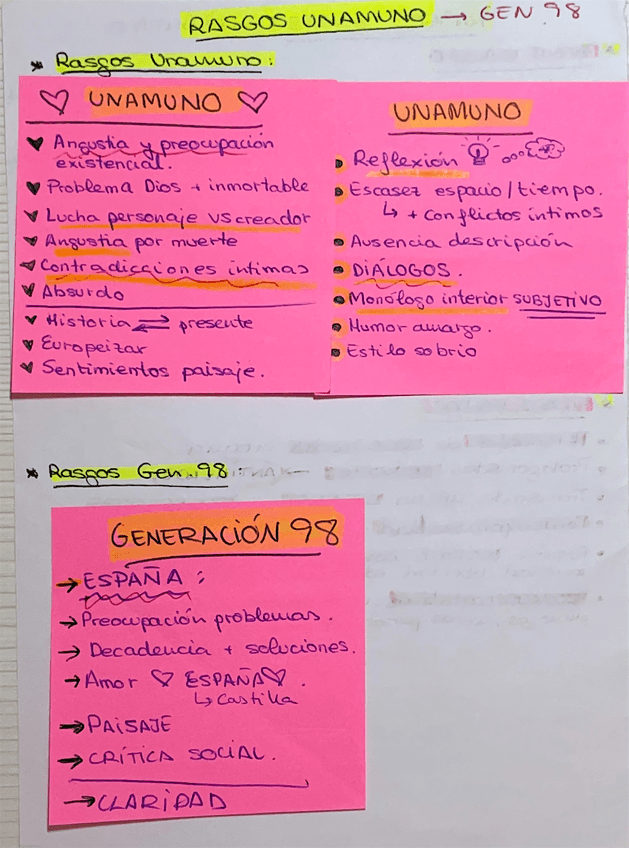 RASGOS UNAMUNO → GEN 98
* Rasgos Unamuno:
♡ UNAMUNO ♡
♥ Angustia y preocupación
existencial.
♥ Problema Dios + inmortable
♥ Lucha personaje vs creador
♥ Angustia por muerte
♥ Contradicciones íntimas
♥ Absurdo
♥ Historia ⇄ presente
♥ Europeizar
♥ Sentimientos paisaje.
UNAMUNO
• Reflexión
• Escasez espacio/tiempo.
↳ + Conflictos íntimos
• Ausencia descripción
• DIÁLOGOS.
• Monólogo interior SUBJETIVO
• Humor amargo.
• Estilo sobrio
* Rasgos Gen. 98:
GENERACIÓN 98
→ ESPAÑA:
→ Preocupación problemas.
→ Decadencia + soluciones.
→ Amor ♡ ESPAÑA ♡.
↳ Castilla
→ PAISAJE
→ CRÍTICA SOCIAL.
→ CLARIDAD